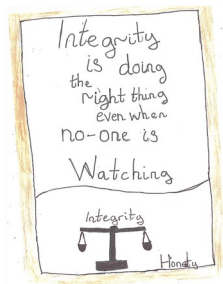 Integrity
is doing
the
right thing
even when
no-one is
Watching
Integrity
Honesty